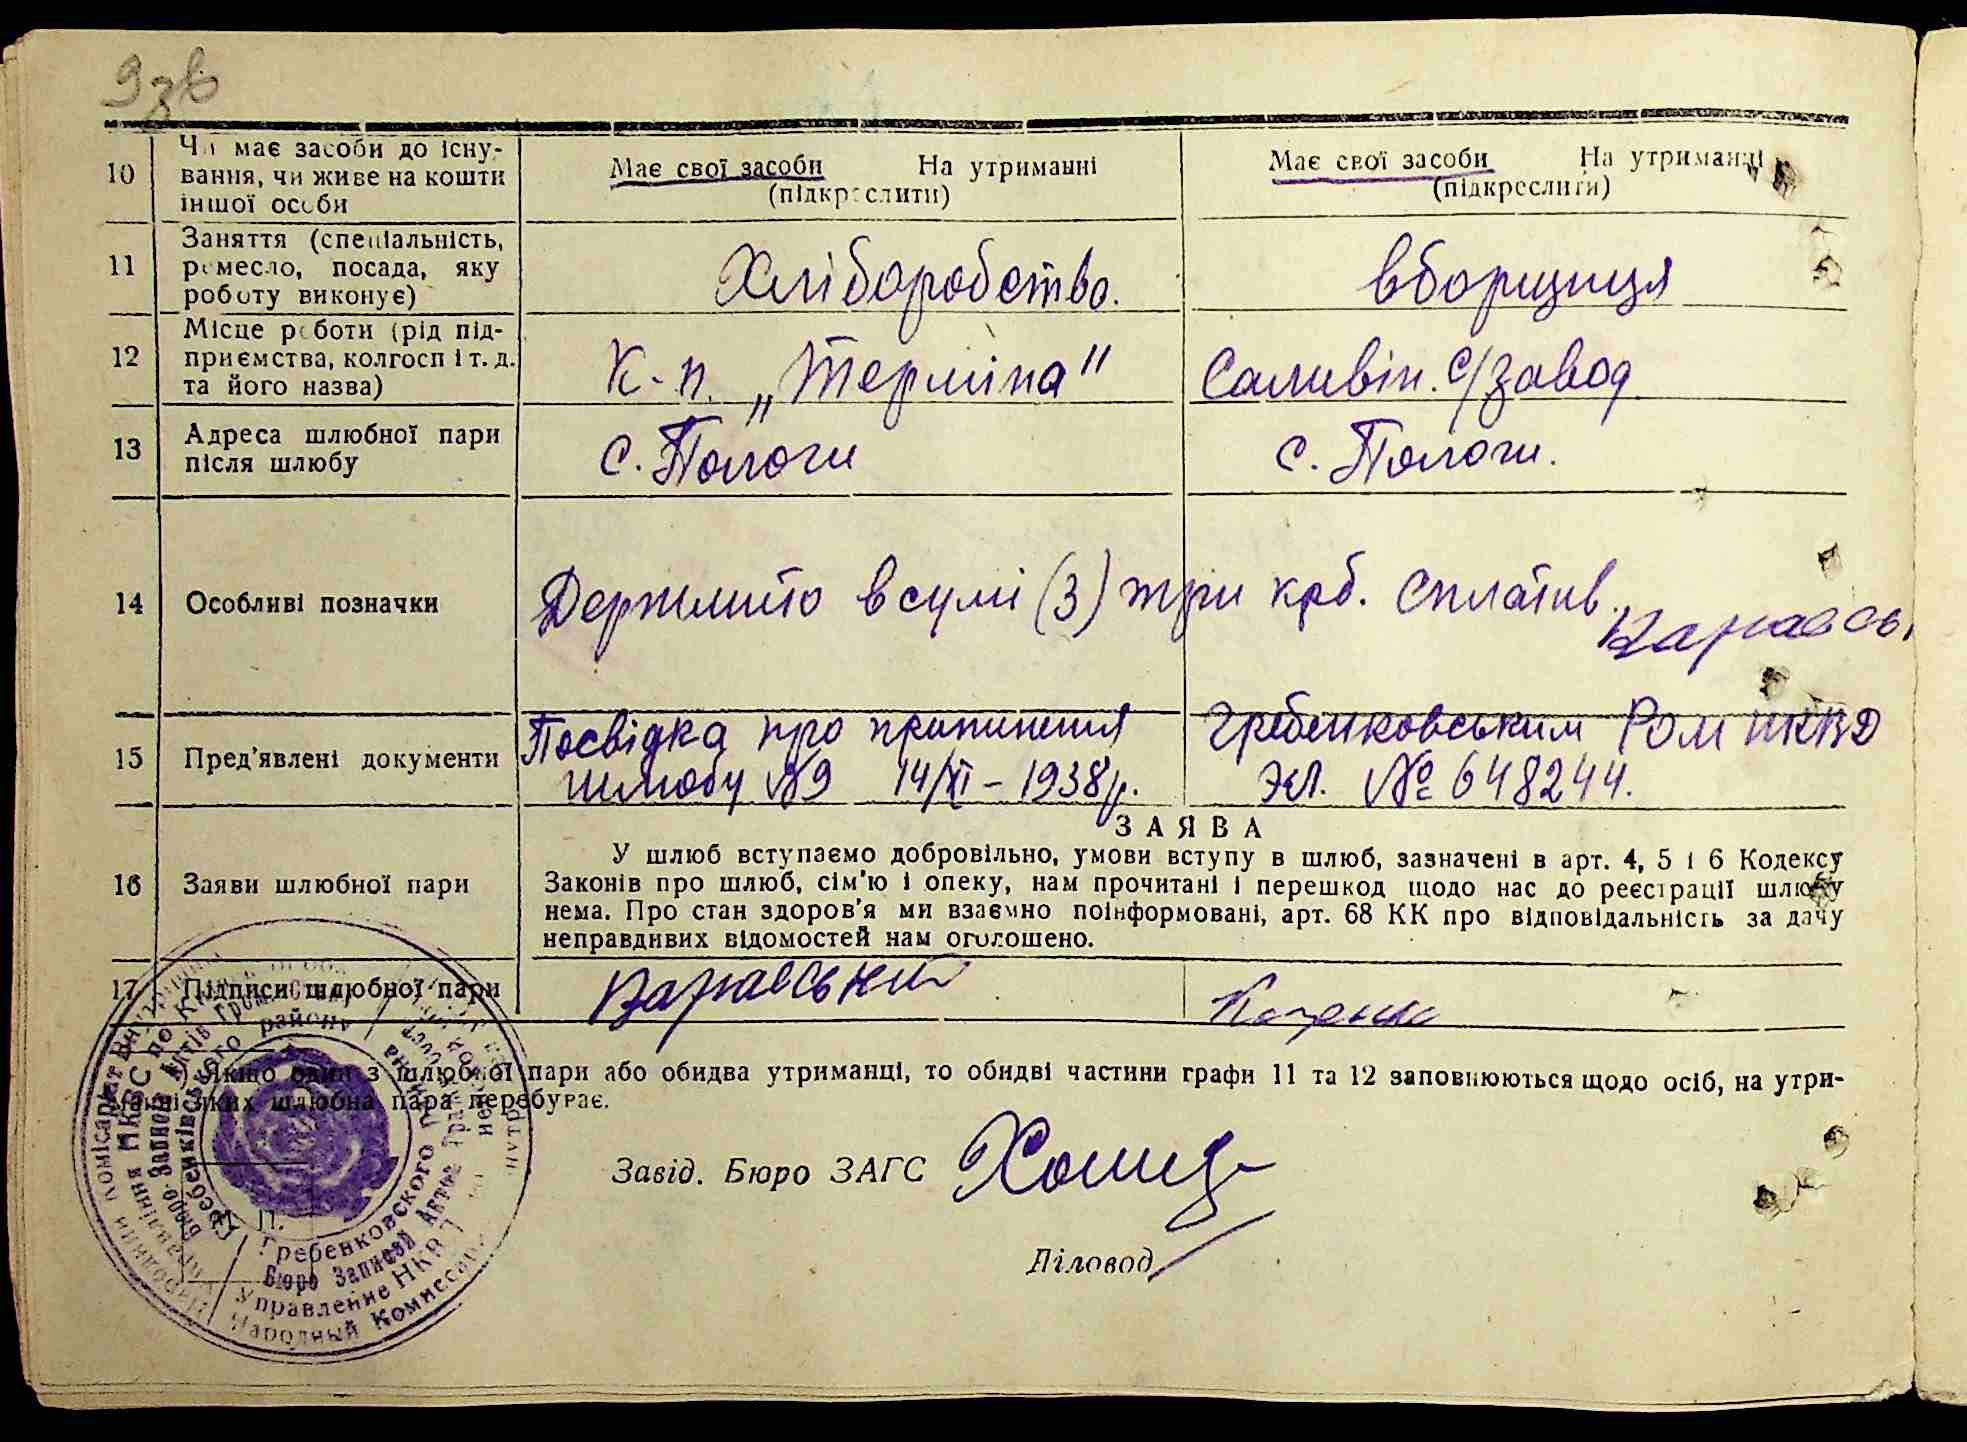 93в
10 Чи має засоби до існу-
вання, чи живе на кошти
іншої особи
Має свої засоби На утриманні
(підкреслити)
Має свої засоби На утриманні
(підкреслити)
11 Заняття (спеціальність,
ремесло, посада, яку
роботу виконує)
Хліборобство.
вборщиця
12 Місце роботи (рід під-
приємства, колгосп і т. д.
та його назва)
К-п. „Терміпа"
Саливін. С/завод
13 Адреса шлюбної пари
після шлюбу
с. Пологи
с. Пологи.
14 Особливі позначки
Держмито в сумі (3) три крб. Сплатив.
15 Пред'явлені документи
Посвідка про припинення
шлюбу №9 14/XI – 1938 р.
Гребенковським РОМ НКВД
ЭЛ. № 648244.
ЗАЯВА
16 Заяви шлюбної пари
У шлюб вступаємо добровільно, умови вступу в шлюб, зазначені в арт. 4, 5 і 6 Кодексу
Законів про шлюб, сім'ю і опеку, нам прочитані і перешкод щодо нас до реєстрації шлюбу
нема. Про стан здоров'я ми взаємно поінформовані, арт. 68 КК про відповідальність за дачу
неправдивих відомостей нам оголошено.
17 Підписи шлюбної пари
Якщо один з шлюбної пари або обидва утриманці, то обидві частини графи 11 та 12 заповнюються щодо осіб, на утри-
манні яких шлюбна пара перебуває.
Завід. Бюро ЗАГС
Діловод
Гребенковского
Бюро Записей Актов
Управление НКВД
Народный Комиссариат